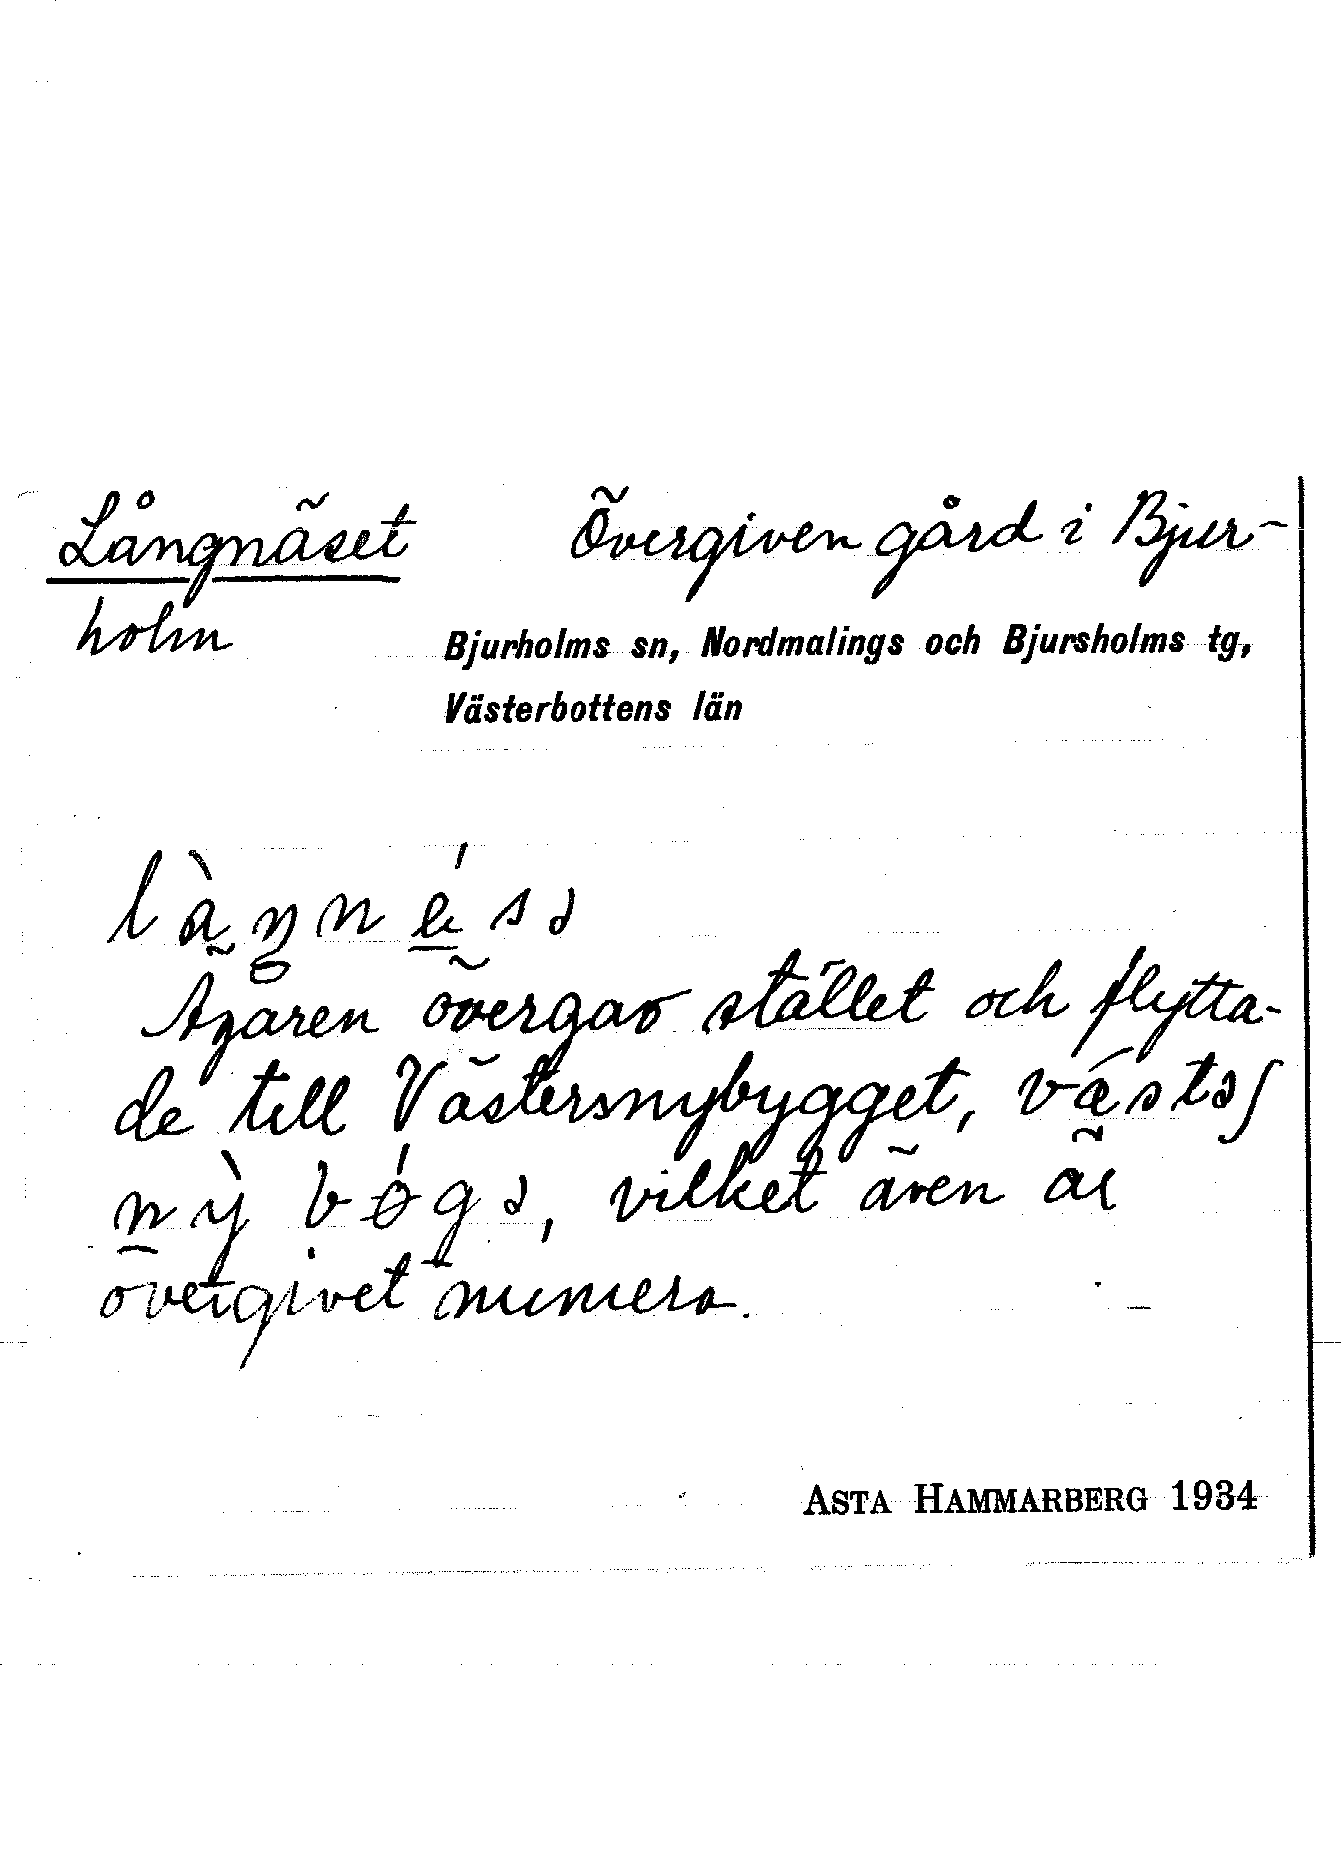 Långnäset Övergiven gård i Bjur-
holm
Bjurholms sn, Nordmalings och Bjursholms tg,
Västerbottens län
làŋnésə
Ägaren övergav stället och flytta-
de till Västersnybygget, væstəʃ
nỳ bǿgə, vilket även är
övergivet numera.
ASTA HAMMARBERG 1934